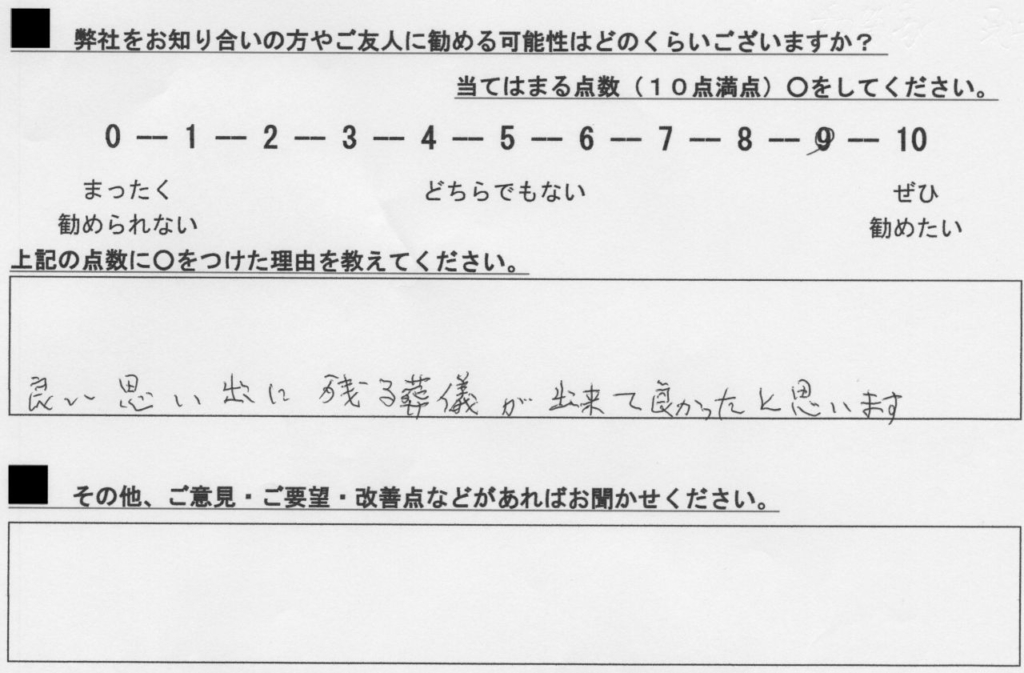 弊社をお知り合いの方やご友人に勧める可能性はどのくらいございますか？
当てはまる点数（１０点満点）〇をしてください。
0 ── 1 ── 2 ── 3 ── 4 ── 5 ── 6 ── 7 ── 8 ── 9 ── 10
まったく どちらでもない ぜひ
勧められない 勧めたい
上記の点数に〇をつけた理由を教えてください。
良い思い出に残る葬儀が出来て良かったと思います
その他、ご意見・ご要望・改善点などがあればお聞かせください。